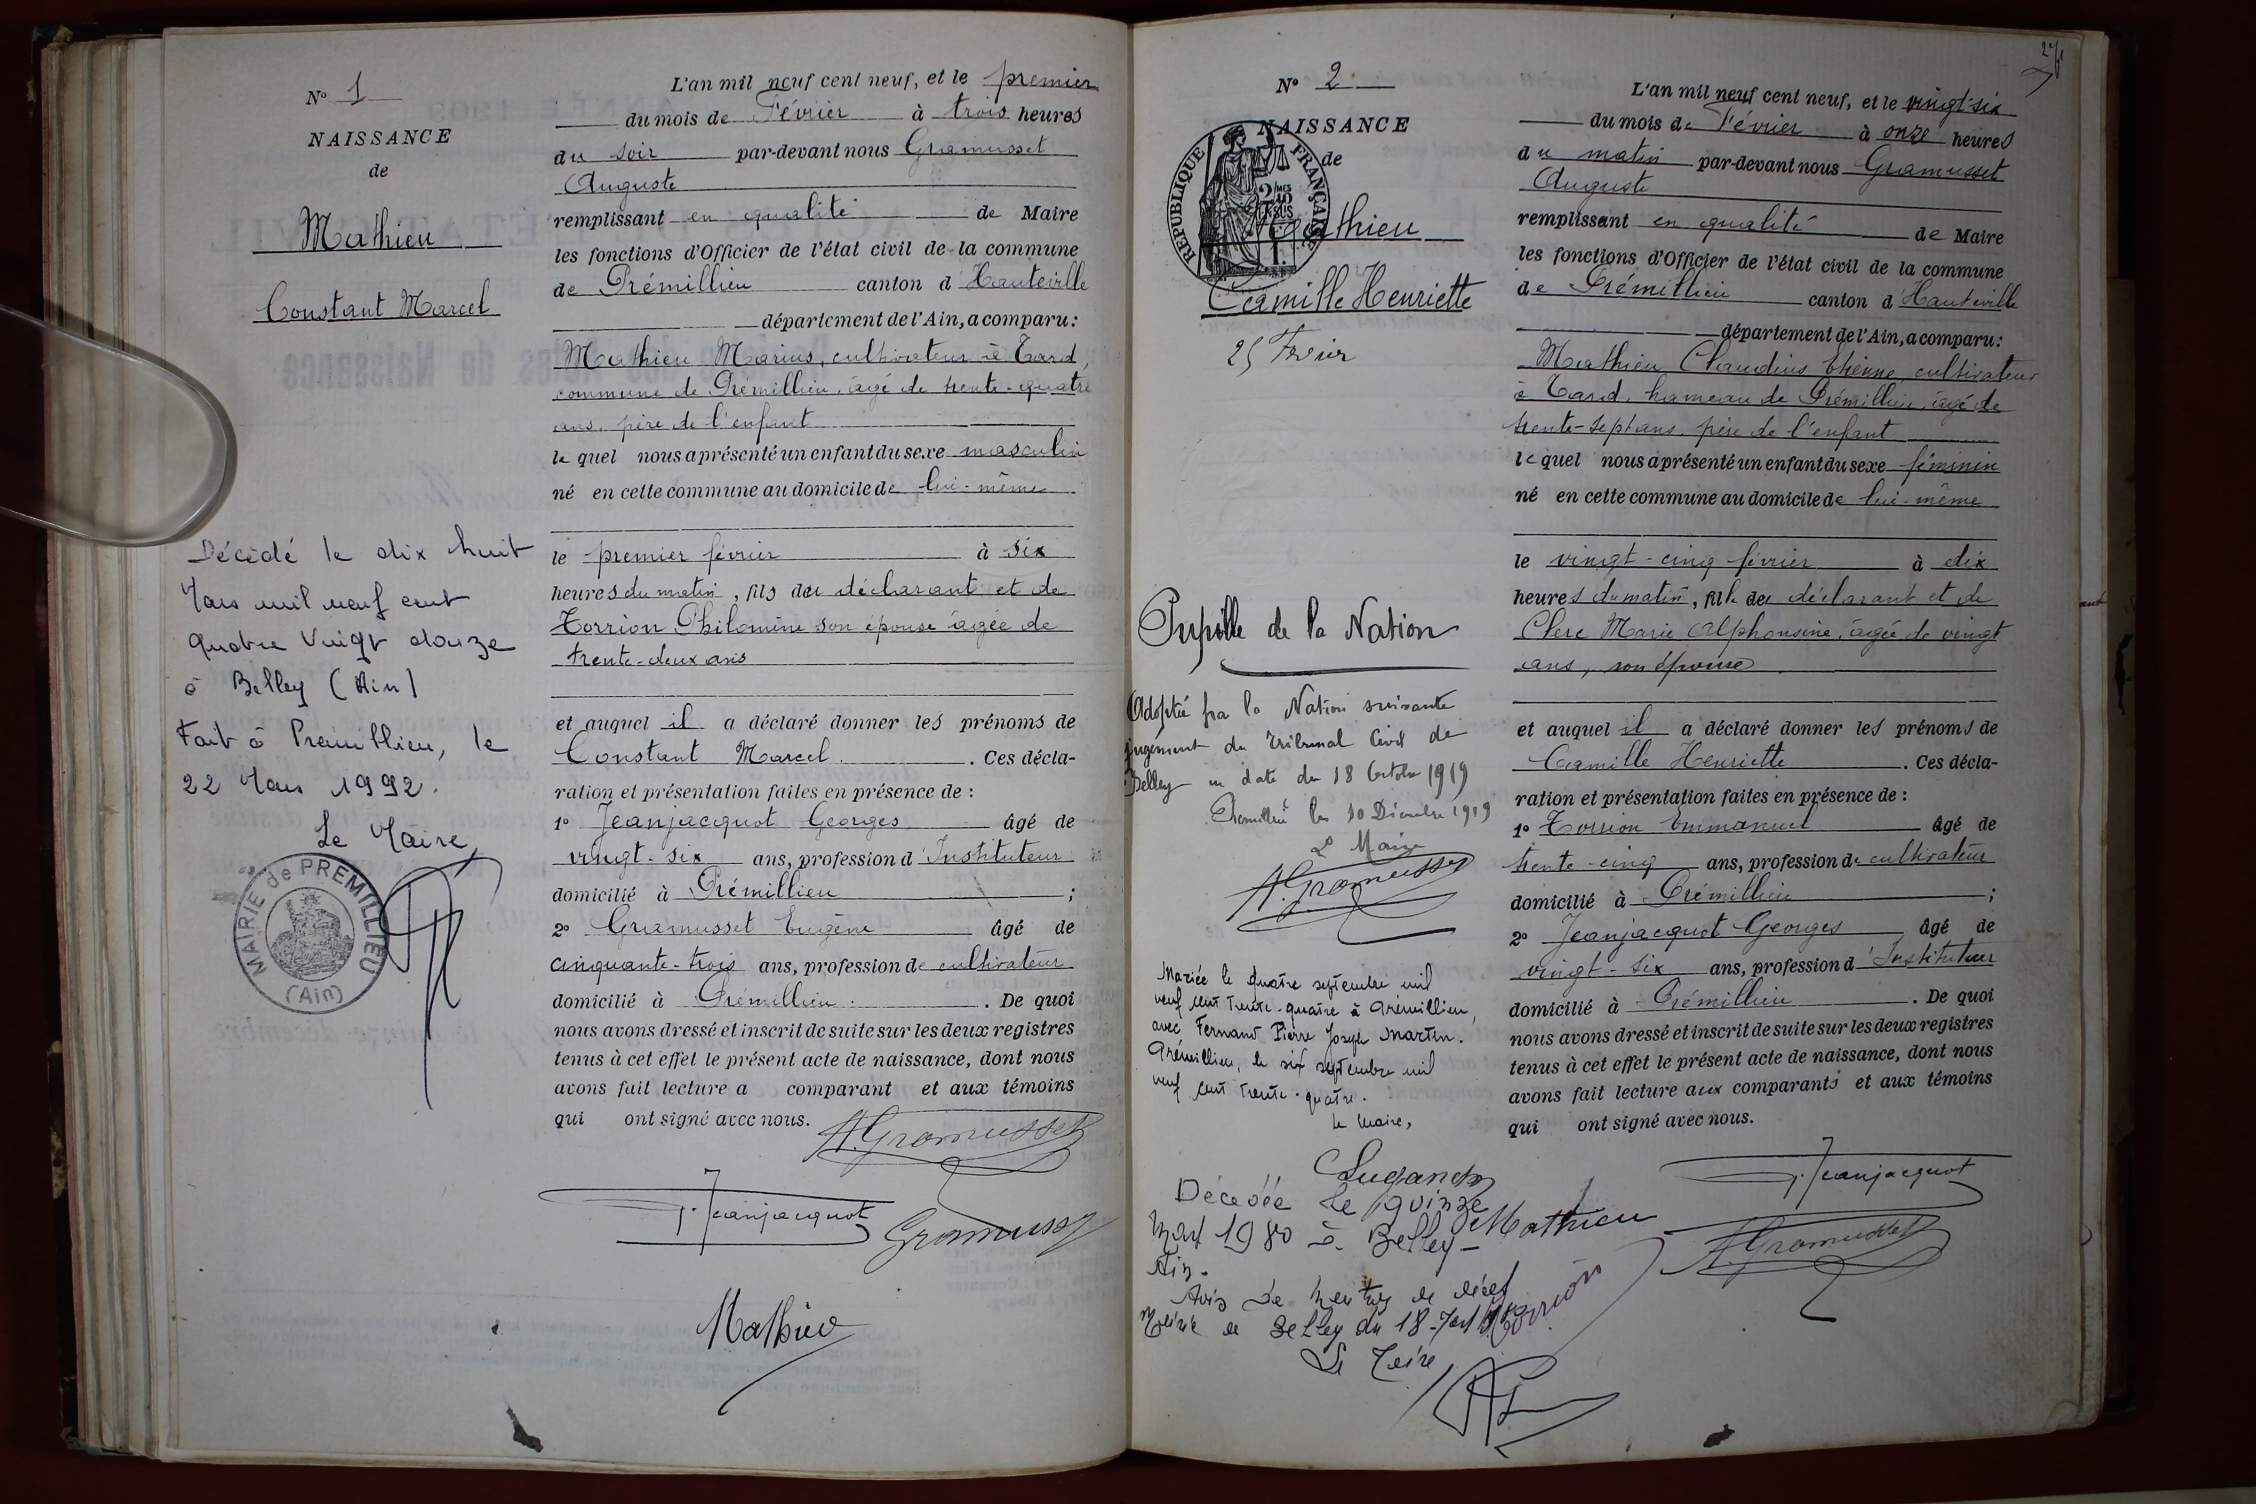 N° 1
NAISSANCE
de
Mathieu
Constant Marcel
Décédé le dix huit
Mars mil neuf cent
quatre Vingt douze
à Belley (Ain)
Fait à Premillieu, le
22 Mars 1992.
Le Maire,
MAIRIE de PREMILLIEU
(Ain)
L'an mil neuf cent neuf, et le premier
du mois de Février à trois heures
du soir par-devant nous Gramusset
Auguste
remplissant en qualité de Maire
les fonctions d'Officier de l'état civil de la commune
de Prémillieu canton d'Hauteville
département de l'Ain, a comparu :
Mathieu Marius, cultivateur à Tard,
commune de Prémillieu, âgé de trente-quatre
ans, père de l'enfant
lequel nous a présenté un enfant du sexe masculin
né en cette commune au domicile de lui-même
le premier février à six
heures du matin, fils du déclarant et de
Torrion Philomène son épouse âgée de
trente-deux ans
et auquel il a déclaré donner les prénoms de
Constant Marcel. Ces décla-
ration et présentation faites en présence de :
1° Jeanjacquot Georges âgé de
vingt-six ans, profession d'Instituteur
domicilié à Prémillieu ;
2° Gramusset Eugène âgé de
cinquante-trois ans, profession de cultivateur
domicilié à Prémillieu. De quoi
nous avons dressé et inscrit de suite sur les deux registres
tenus à cet effet le présent acte de naissance, dont nous
avons fait lecture a comparant et aux témoins
qui ont signé avec nous.
A. Gramusset
G. Jeanjacquot
Gramusset
Mathieu
N° 2
NAISSANCE
de
RÉPUBLIQUE FRANÇAISE
Mathieu
Camille Henriette
25 Février
Pupille de la Nation
Adoptée par la Nation suivante
jugement du Tribunal Civil de
Belley en date du 18 Octobre 1919
Prémillieu le 10 Décembre 1919
Le Maire
A. Gramusset
Mariée le quatre septembre mil
neuf cent trente-quatre à Prémillieu,
avec Fernand Pierre Joseph Martin.
Prémillieu, le six septembre mil
neuf cent trente-quatre.
Le Maire,
Décédée le quinze
Mars 1980 à Belley -
Ain -
Avis de mention de décès
Mairie de Belley du 18 Mars
Le Maire
L'an mil neuf cent neuf, et le vingt-six
du mois de Février à onze heures
du matin par-devant nous Gramusset
Auguste
remplissant en qualité de Maire
les fonctions d'Officier de l'état civil de la commune
de Prémillieu canton d'Hauteville
département de l'Ain, a comparu :
Mathieu Claudius Etienne, cultivateur
à Tard, hameau de Prémillieu, âgé de
trente-sept ans, père de l'enfant
lequel nous a présenté un enfant du sexe féminin
né en cette commune au domicile de lui-même
le vingt-cinq février à dix
heures du matin, fille du déclarant et de
Clerc Marie Alphonsine, âgée de vingt
ans, son épouse
et auquel il a déclaré donner les prénoms de
Camille Henriette. Ces décla-
ration et présentation faites en présence de :
1° Torrion Emmanuel âgé de
trente-cinq ans, profession de cultivateur
domicilié à Prémillieu ;
2° Jeanjacquot Georges âgé de
vingt-six ans, profession d'Instituteur
domicilié à Prémillieu. De quoi
nous avons dressé et inscrit de suite sur les deux registres
tenus à cet effet le présent acte de naissance, dont nous
avons fait lecture aux comparants et aux témoins
qui ont signé avec nous.
G. Jeanjacquot
Mathieu
A. Gramusset
Torrion